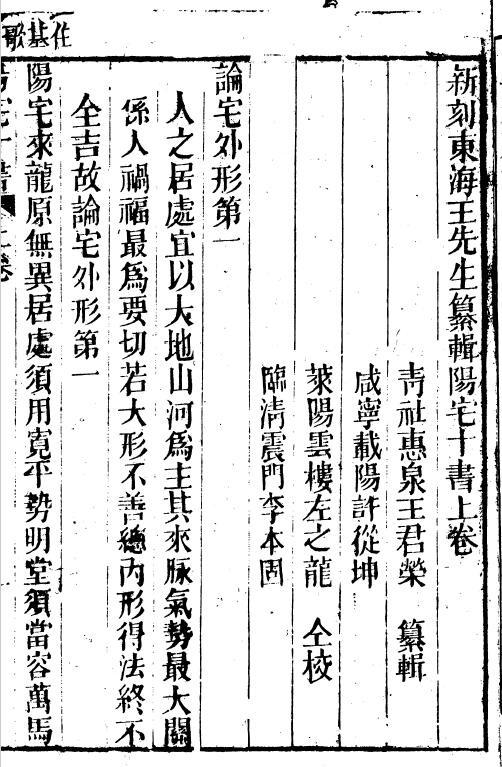 新刻東海王先生纂輯陽宅十書上卷
青社惠泉王君榮　纂輯
咸寧載陽許從坤
萊陽雲樓左之龍　仝校
臨清震門李本固
論宅外形第一
人之居處宜以大地山河爲主其來脉氣勢最大關
係人禍福最爲要切若大形不善總內形得法終不
全吉故論宅外形第一
陽宅來龍原無異居處須用寬平勢明堂須當容萬馬
基歌